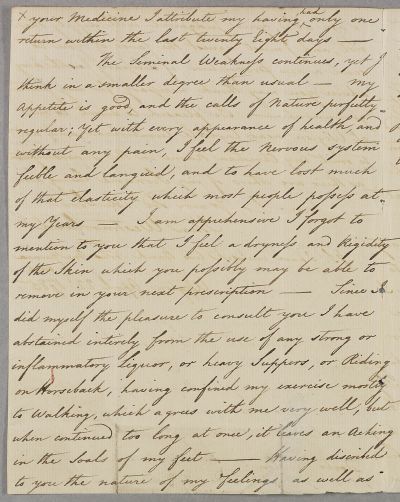 x your Medicine I attribute my having had only one
return within the last twenty Eight days —
The Seminal Weakness continues, yet I
think in a smaller degree than usual — my
Appetite is good, and the calls of Nature perfectly
regular; Yet with every appearance of health, and
without any pain, I feel the Nervous system
feeble and languid, and to have lost much
of that elasticity which most people possess at
my Years — I am apprehensive I forgot to
mention to you that I feel a dryness and Rigidity
of the Skin which you possibly may be able to
remove in your next prescription — Since I
did myself the pleasure to consult you I have
abstained intirely from the use of any strong or
inflammatory liquor, or heavy Suppers, or Riding
on Horseback, having confined my exercise mostly
to Walking, which agrees with me very well, but
when continued too long at once, it leaves an Aching
in the Soals of my feet — Having discribed
to you the nature of my feelings as well as